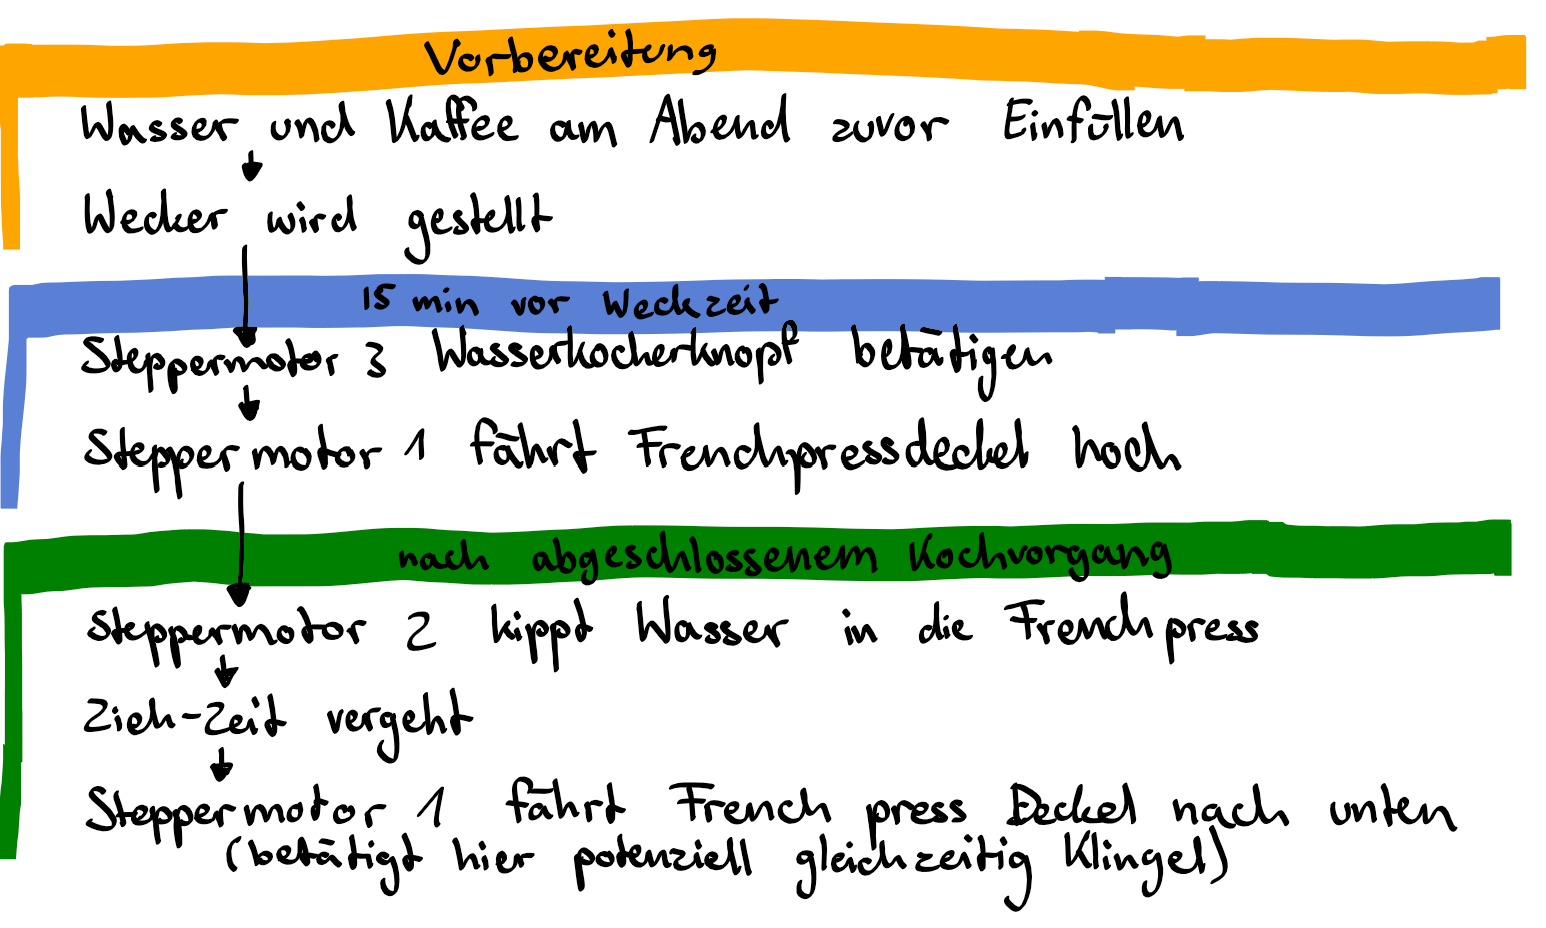 Vorbereitung
Wasser und Kaffee am Abend zuvor Einfüllen
Wecker wird gestellt
15 min vor Weckzeit
Steppermotor 3 Wasserkocherknopf betätigen
Steppermotor 1 fährt Frenchpressdeckel hoch
nach abgeschlossenem Kochvorgang
Steppermotor 2 kippt Wasser in die Frenchpress
Zieh-Zeit vergeht
Steppermotor 1 fährt French press Deckel nach unten
(betätigt hier potenziell gleichzeitig Klingel)